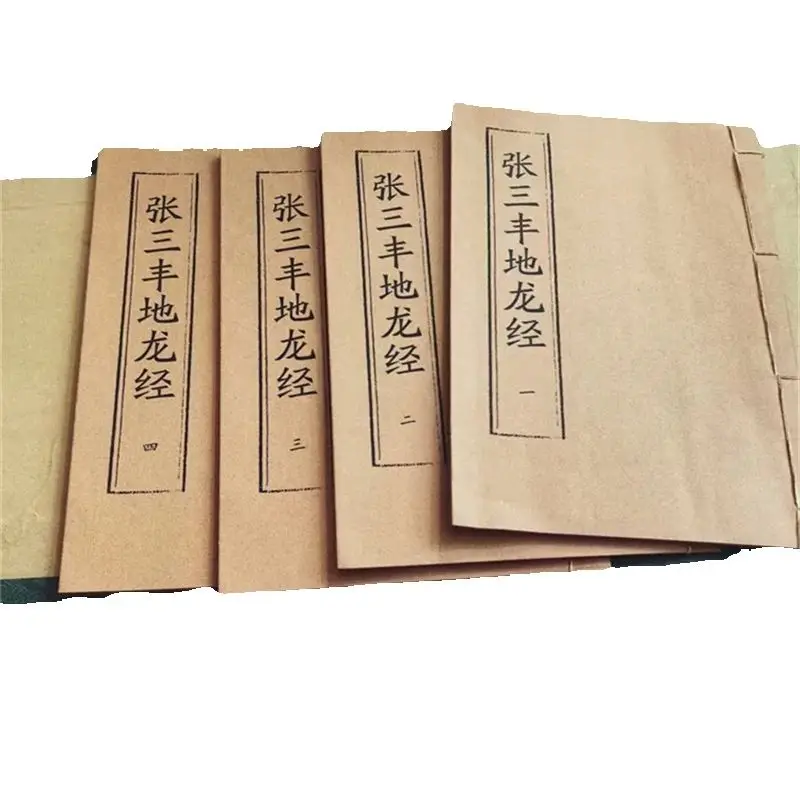 张三丰地龙经 一
张三丰地龙经 二
张三丰地龙经 三
张三丰地龙经 四